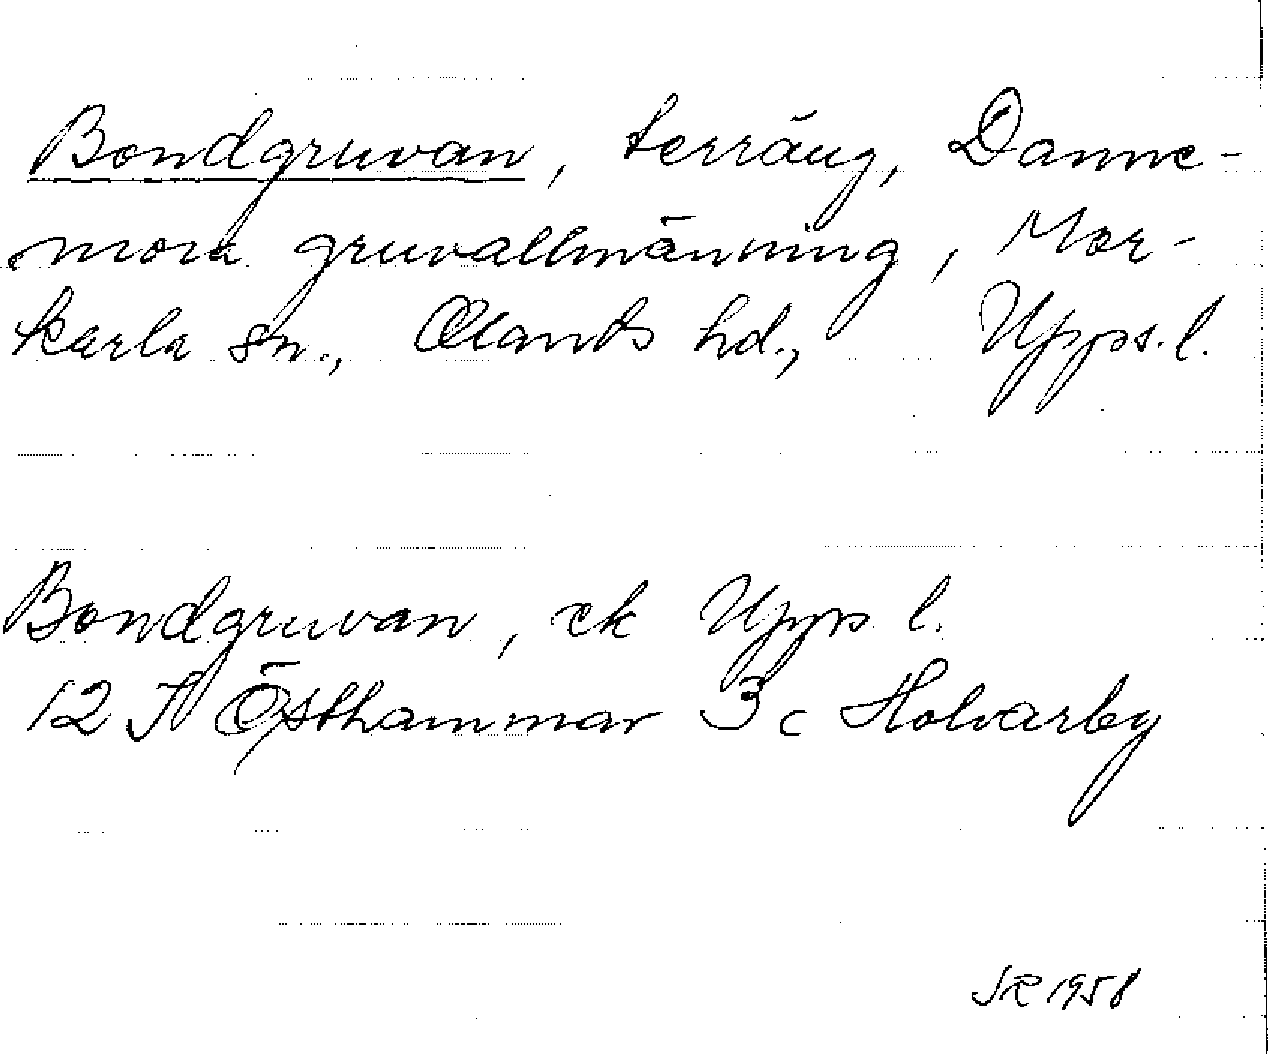 Bondgruvan, terräng, Danne-
mora gruvallmänning, Mor-
karla sn., Olands hd., Upps. l.
Bondgruvan, ek Upps l.
12 I Östhammar 3 c Holvarby
SR 1958